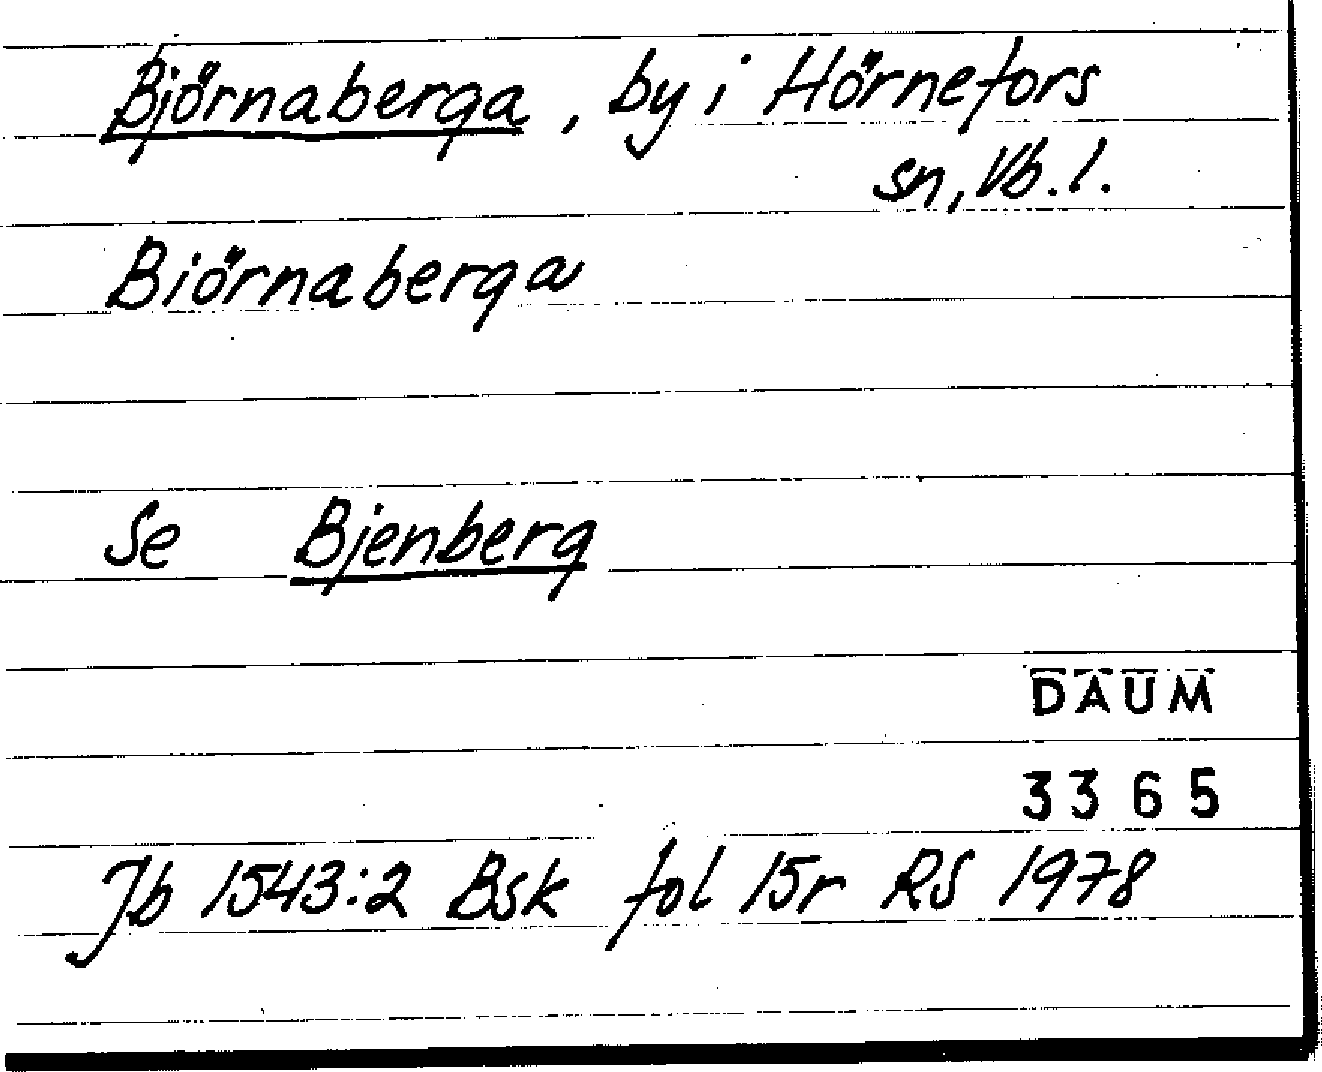 Björnaberga, by i Hörnefors
sn, Vb. l.
Biörnaberga
Se Bjenberg
DAUM
3365
Jb 1543:2 Bsk fol 15r RS 1978